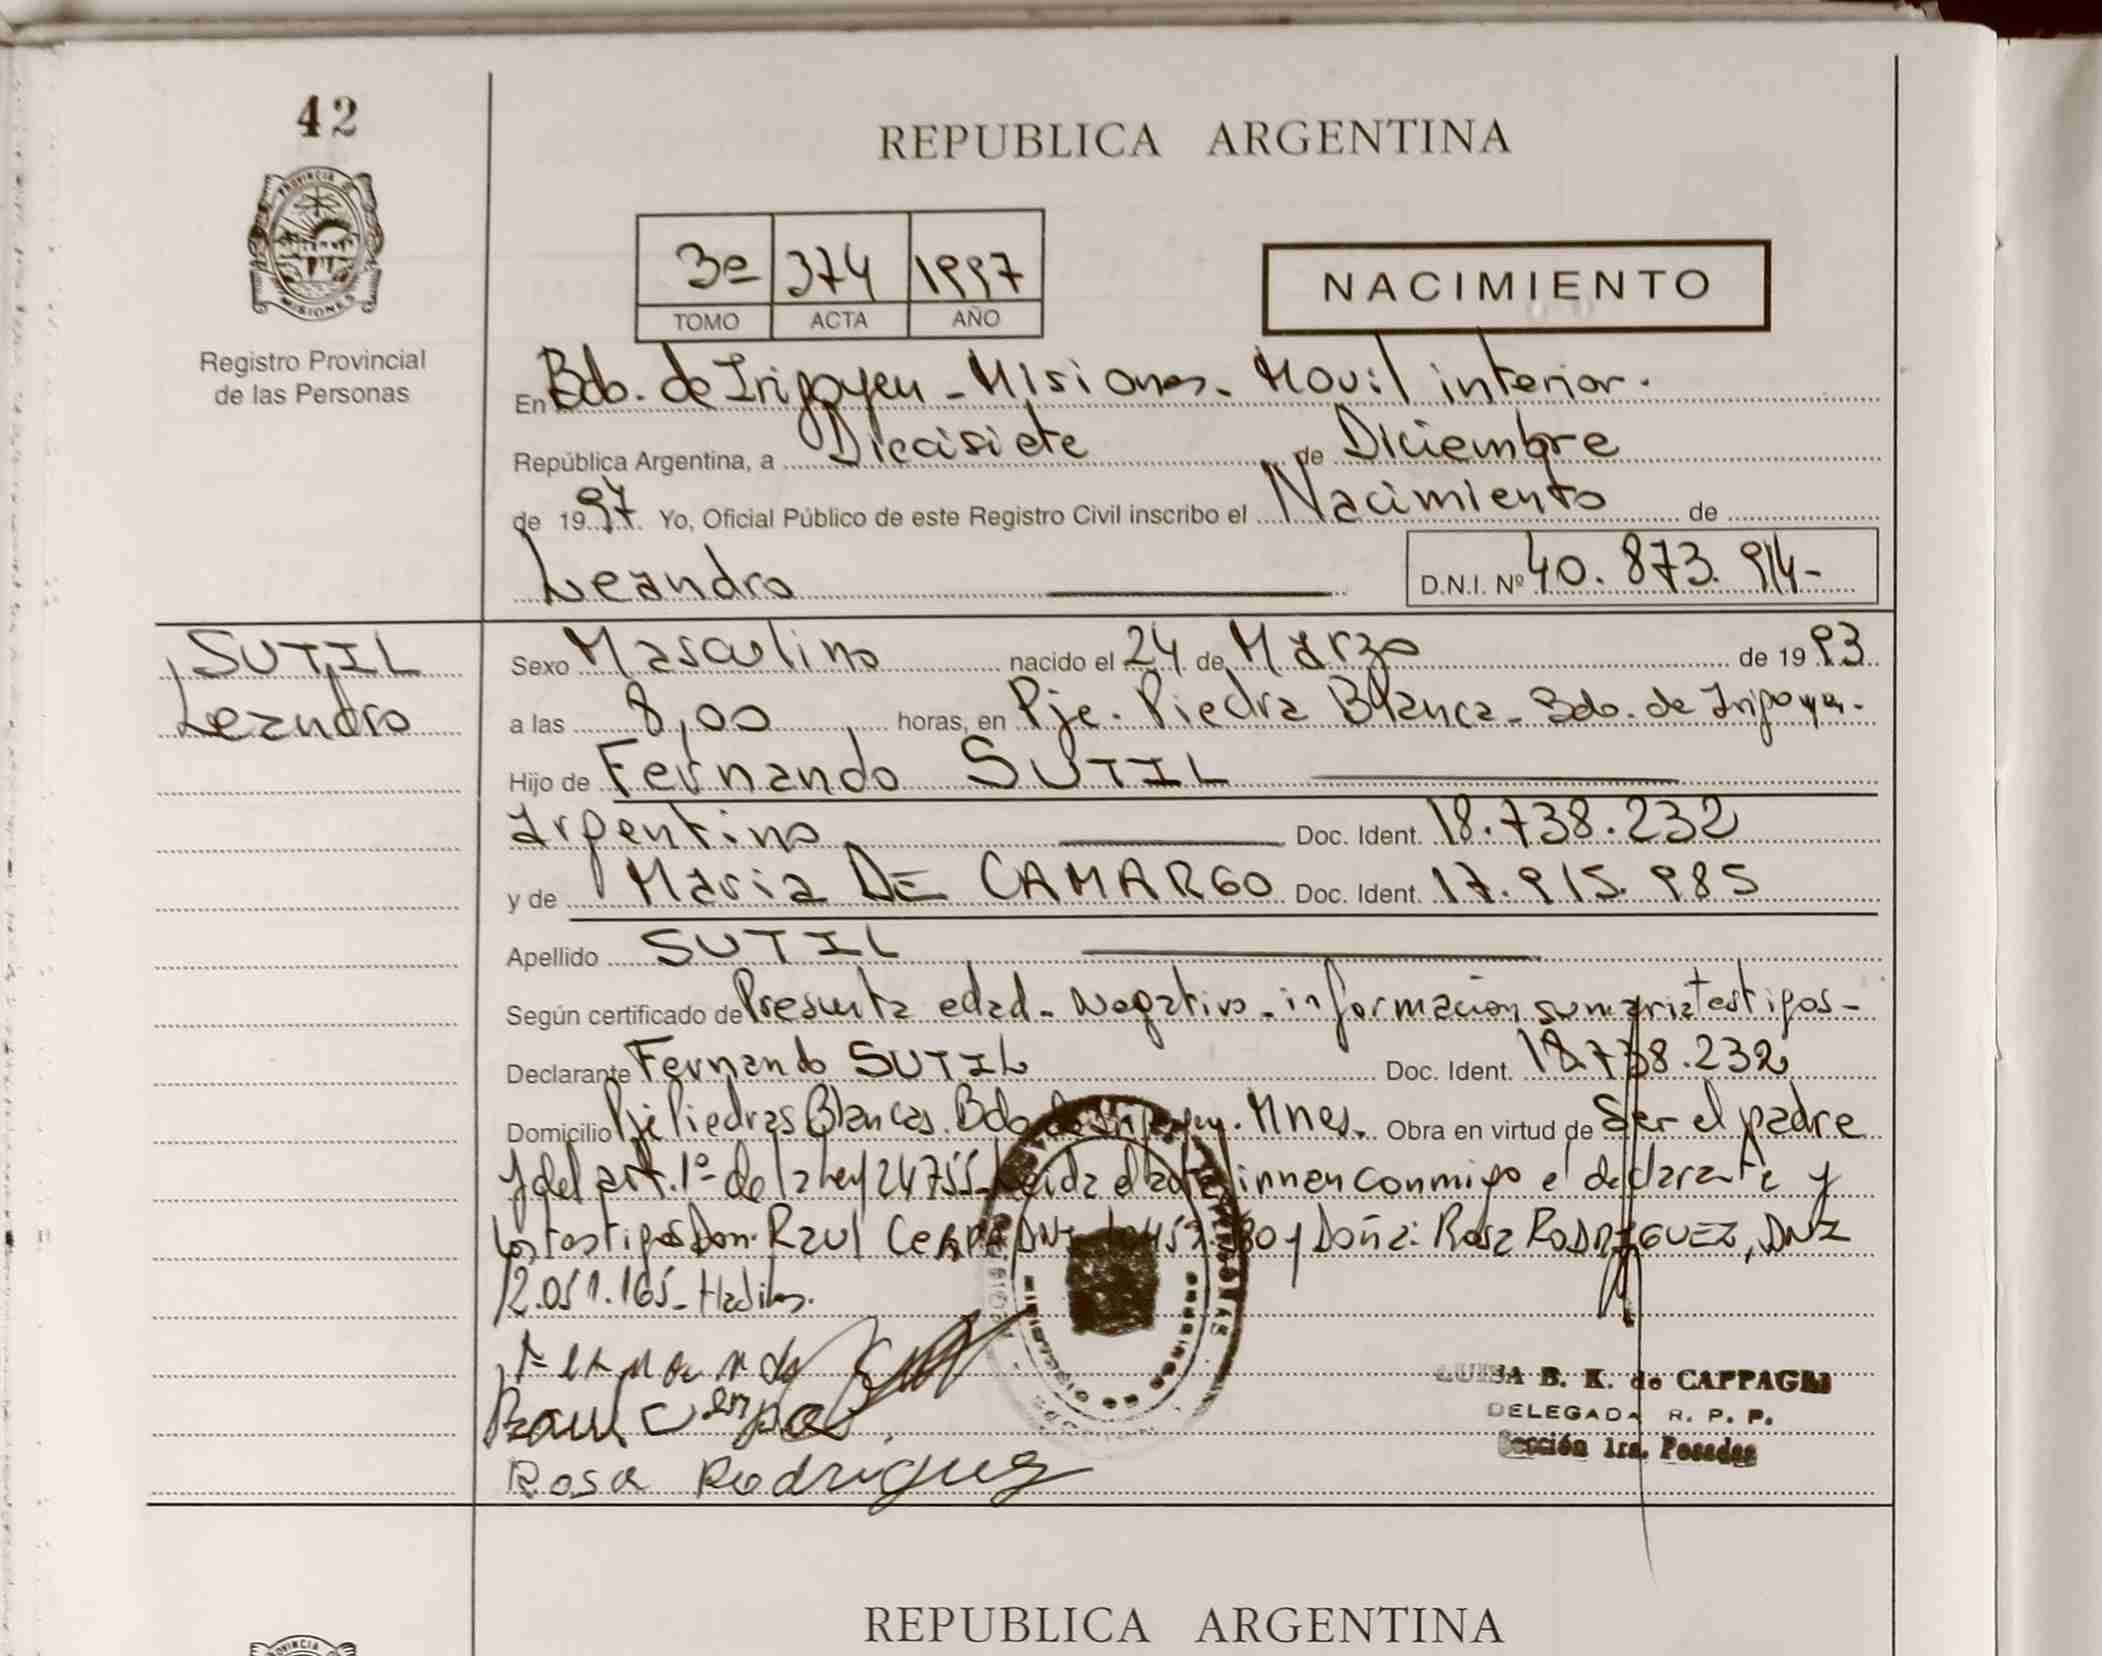 42
REPUBLICA ARGENTINA
PROVINCIA DE
MISIONES
Registro Provincial
de las Personas
3º 374 1997
TOMO ACTA AÑO
NACIMIENTO
En Bdo. de Irigoyen - Misiones. Movil interior.
República Argentina, a Diecisiete de Diciembre
de 1997. Yo, Oficial Público de este Registro Civil inscribo el Nacimiento de
Leandro D.N.I. Nº 40.873.914-
SUTIL
Leandro
Sexo Masculino nacido el 24 de Marzo de 1993
a las 8,00 horas, en Pje. Piedra Blanca - Bdo. de Irigoyen.
Hijo de Fernando SUTIL
Argentino Doc. Ident. 18.738.232
y de Maria DE CAMARGO Doc. Ident. 17.915.985
Apellido SUTIL
Según certificado de Presunta edad - Negativo - informacion sumaria testigos -
Declarante Fernando SUTIL Doc. Ident. 18.738.232
Domicilio Pje Piedras Blancas. Bdo de Irigoyen. Mnes. Obra en virtud de Ser el padre
y del art. 1º de la Ley 24755 - Leida el acta firman conmigo el declarante y
los testigos Don. Raul DNI y Doña: Rosa RODRIGUEZ, DNI
12.051.165 -
Fernando
Raul
Rosa Rodriguez
LUISA B. K. de CAPPAGLI
DELEGADA R. P. P.
Sección 1ra. Posadas
REPUBLICA ARGENTINA
PROVINCIA